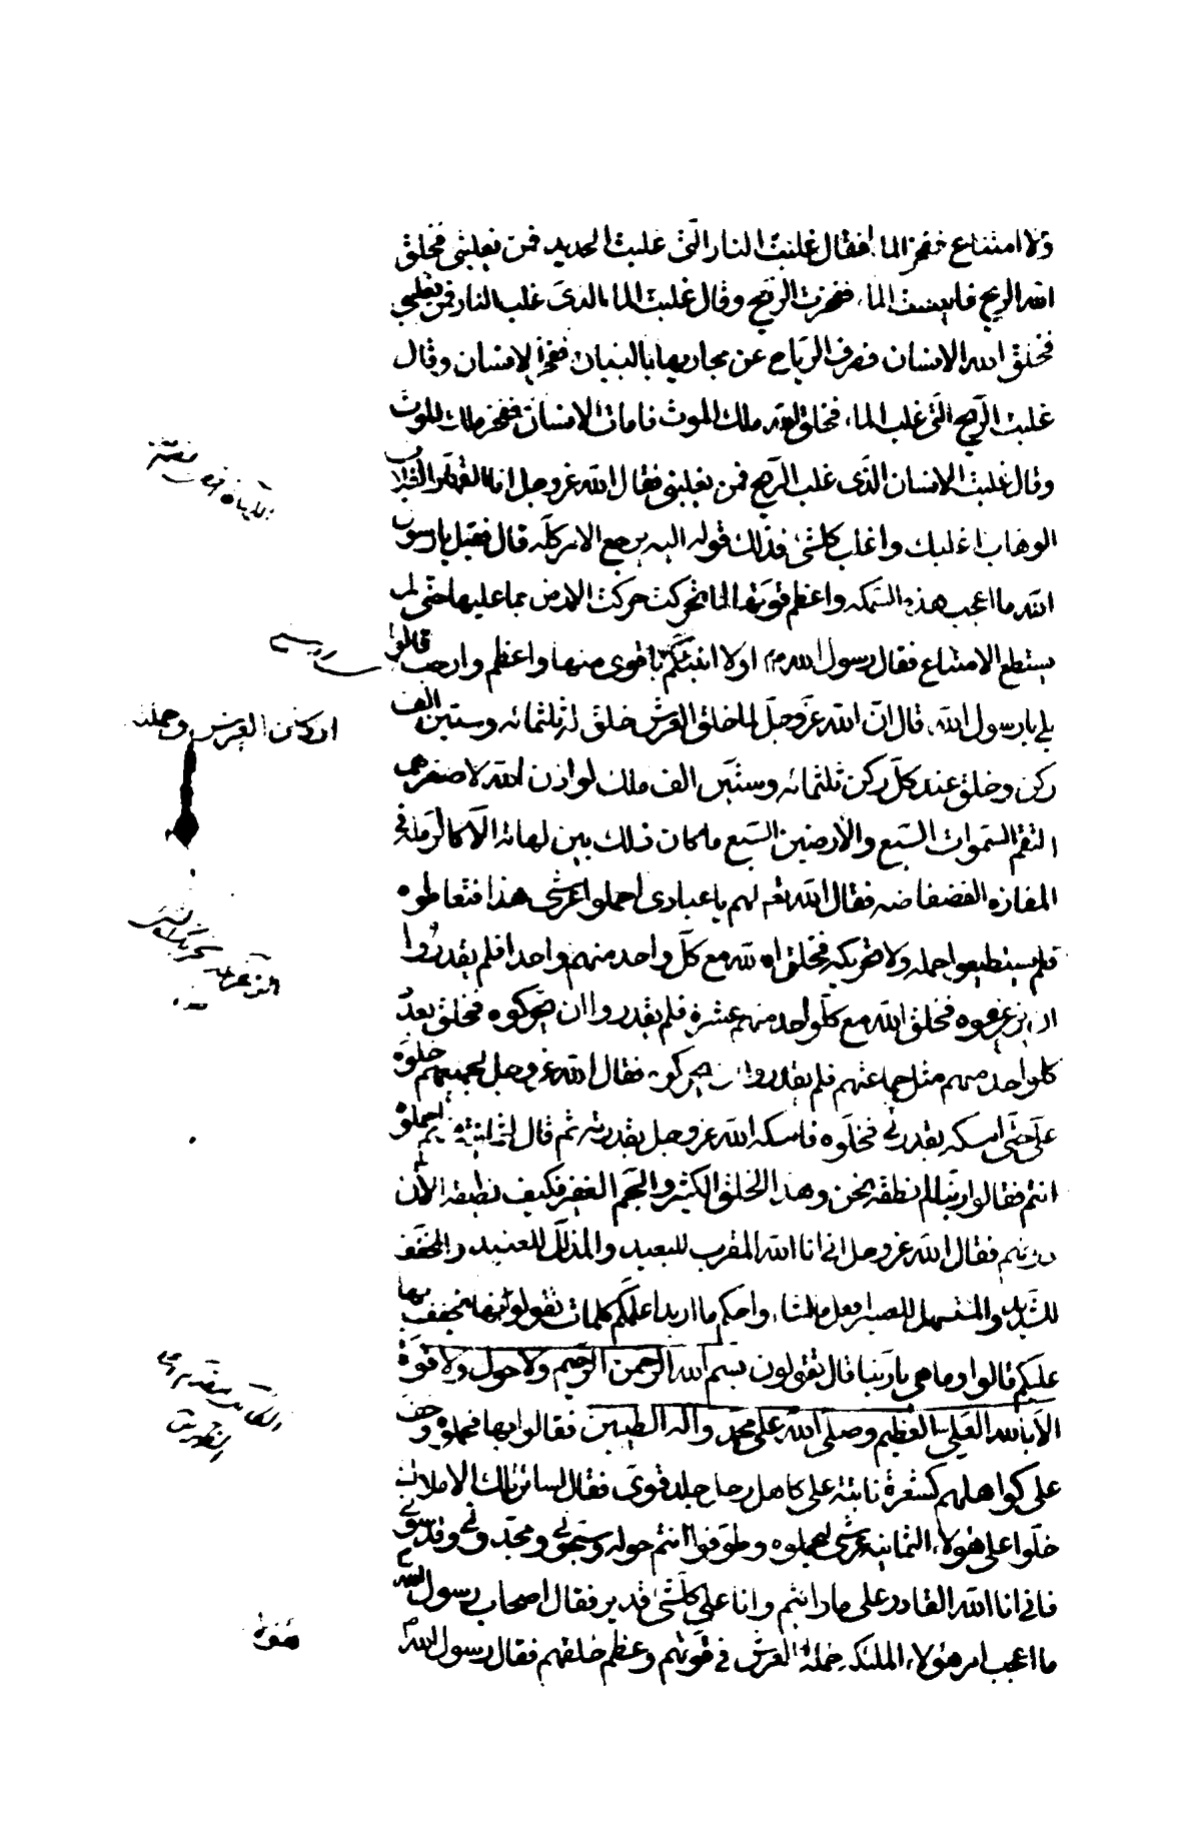 ولا امتناع ففخر الماء فقال غلبت النار التى غلبت الحديد فمن يغلبنى فخلق
الله الريح فايبست الماء ففخرت الريح وقال غلبت الماء الذى غلب النار فمن يغلبنى
فخلق الله الانسان فصرف الرياح عن مجاريها بالبنيان ففخر الانسان وقال
غلبت الريح التى غلب الماء فخلق الله ملك الموت فامات الانسان ففخر ملك الموت
وقال غلبت الانسان الذى غلب الريح فمن يغلبنى فقال الله عز وجل انا القهار الغلاب
الوهاب اغلبك واغلب كلشئ فذلك قوله اليه يرجع الامر كله قال فقيل يا رسول
الله ما اعجب هذه السمكه واعظم قوتها لما تحركت حركت الارض بما عليها حتى لم
يستطع الامتناع فقال رسول الله ص اولا انبئكم باقوى منها واعظم وارحب قالوا
بلى يا رسول الله قال ان الله عز وجل لما خلق العرش خلق له ثلثمائه وستين الف
ركن وخلق عند كل ركن ثلثمائه وستين الف ملك لو اذن الله لاصغرهم
التقم السموات السبع والارضين السبع ما كان ذلك بين لهاته الا كالرمله فى
المفازه الفضفاضه فقال الله تعم لهم يا عبادى احملوا عرشى هذا فتعاطوه
فلم يستطيعوا حمله ولا تحريكه فخلق الله مع كل واحد منهم واحدا فلم يقدروا
ان يزعزعوه فخلق الله مع كلواحد منهم عشرة فلم يقدروا ان يحركوه فخلق بعدد
كلواحد منهم مثل جماعتهم فلم يقدروا ان يحركوه فقال الله عز وجل لجميعهم خلوه
على حتى امسكه بقدرتى فخلوه فامسكه الله عز وجل بقدرته ثم قال لثمانية منهم احملوه
انتم فقالوا ربنا لم نطقه نحن وهذا الخلق الكثير والجم الغفير فكيف نطيقه الان
دونهم فقال الله عز وجل انى انا الله المقرب للبعيد والمذلل للعنيد والمخفف
للشديد والمسهل للعسير افعل ما اشاء واحكم ما اريد اعلمكم كلمات تقولونها يخفف بها
عليكم قالوا وما هى يا ربنا قال تقولون بسم الله الرحمن الرحيم ولا حول ولا قوة
الا بالله العلى العظيم وصلى الله على محمد واله الطيبين فقالوها فحملوه وخف
على كواهلهم كشعرة نابتة على كاهل رجل جلد قوى فقال لسائر تلك الاملاك
خلوا على هؤلاء الثمانيه عرشى ليحملوه وطوفوا انتم حوله وسبحونى ومجدونى وقدسونى
فانى انا الله القادر على ما رايتم وانا على كلشئ قدير فقال اصحاب رسول الله
ما اعجب امر هؤلاء الملئكه حملة العرش فى قوتهم وعظم خلقهم فقال رسول الله ص
اركان العرش وحملته
هؤلاء